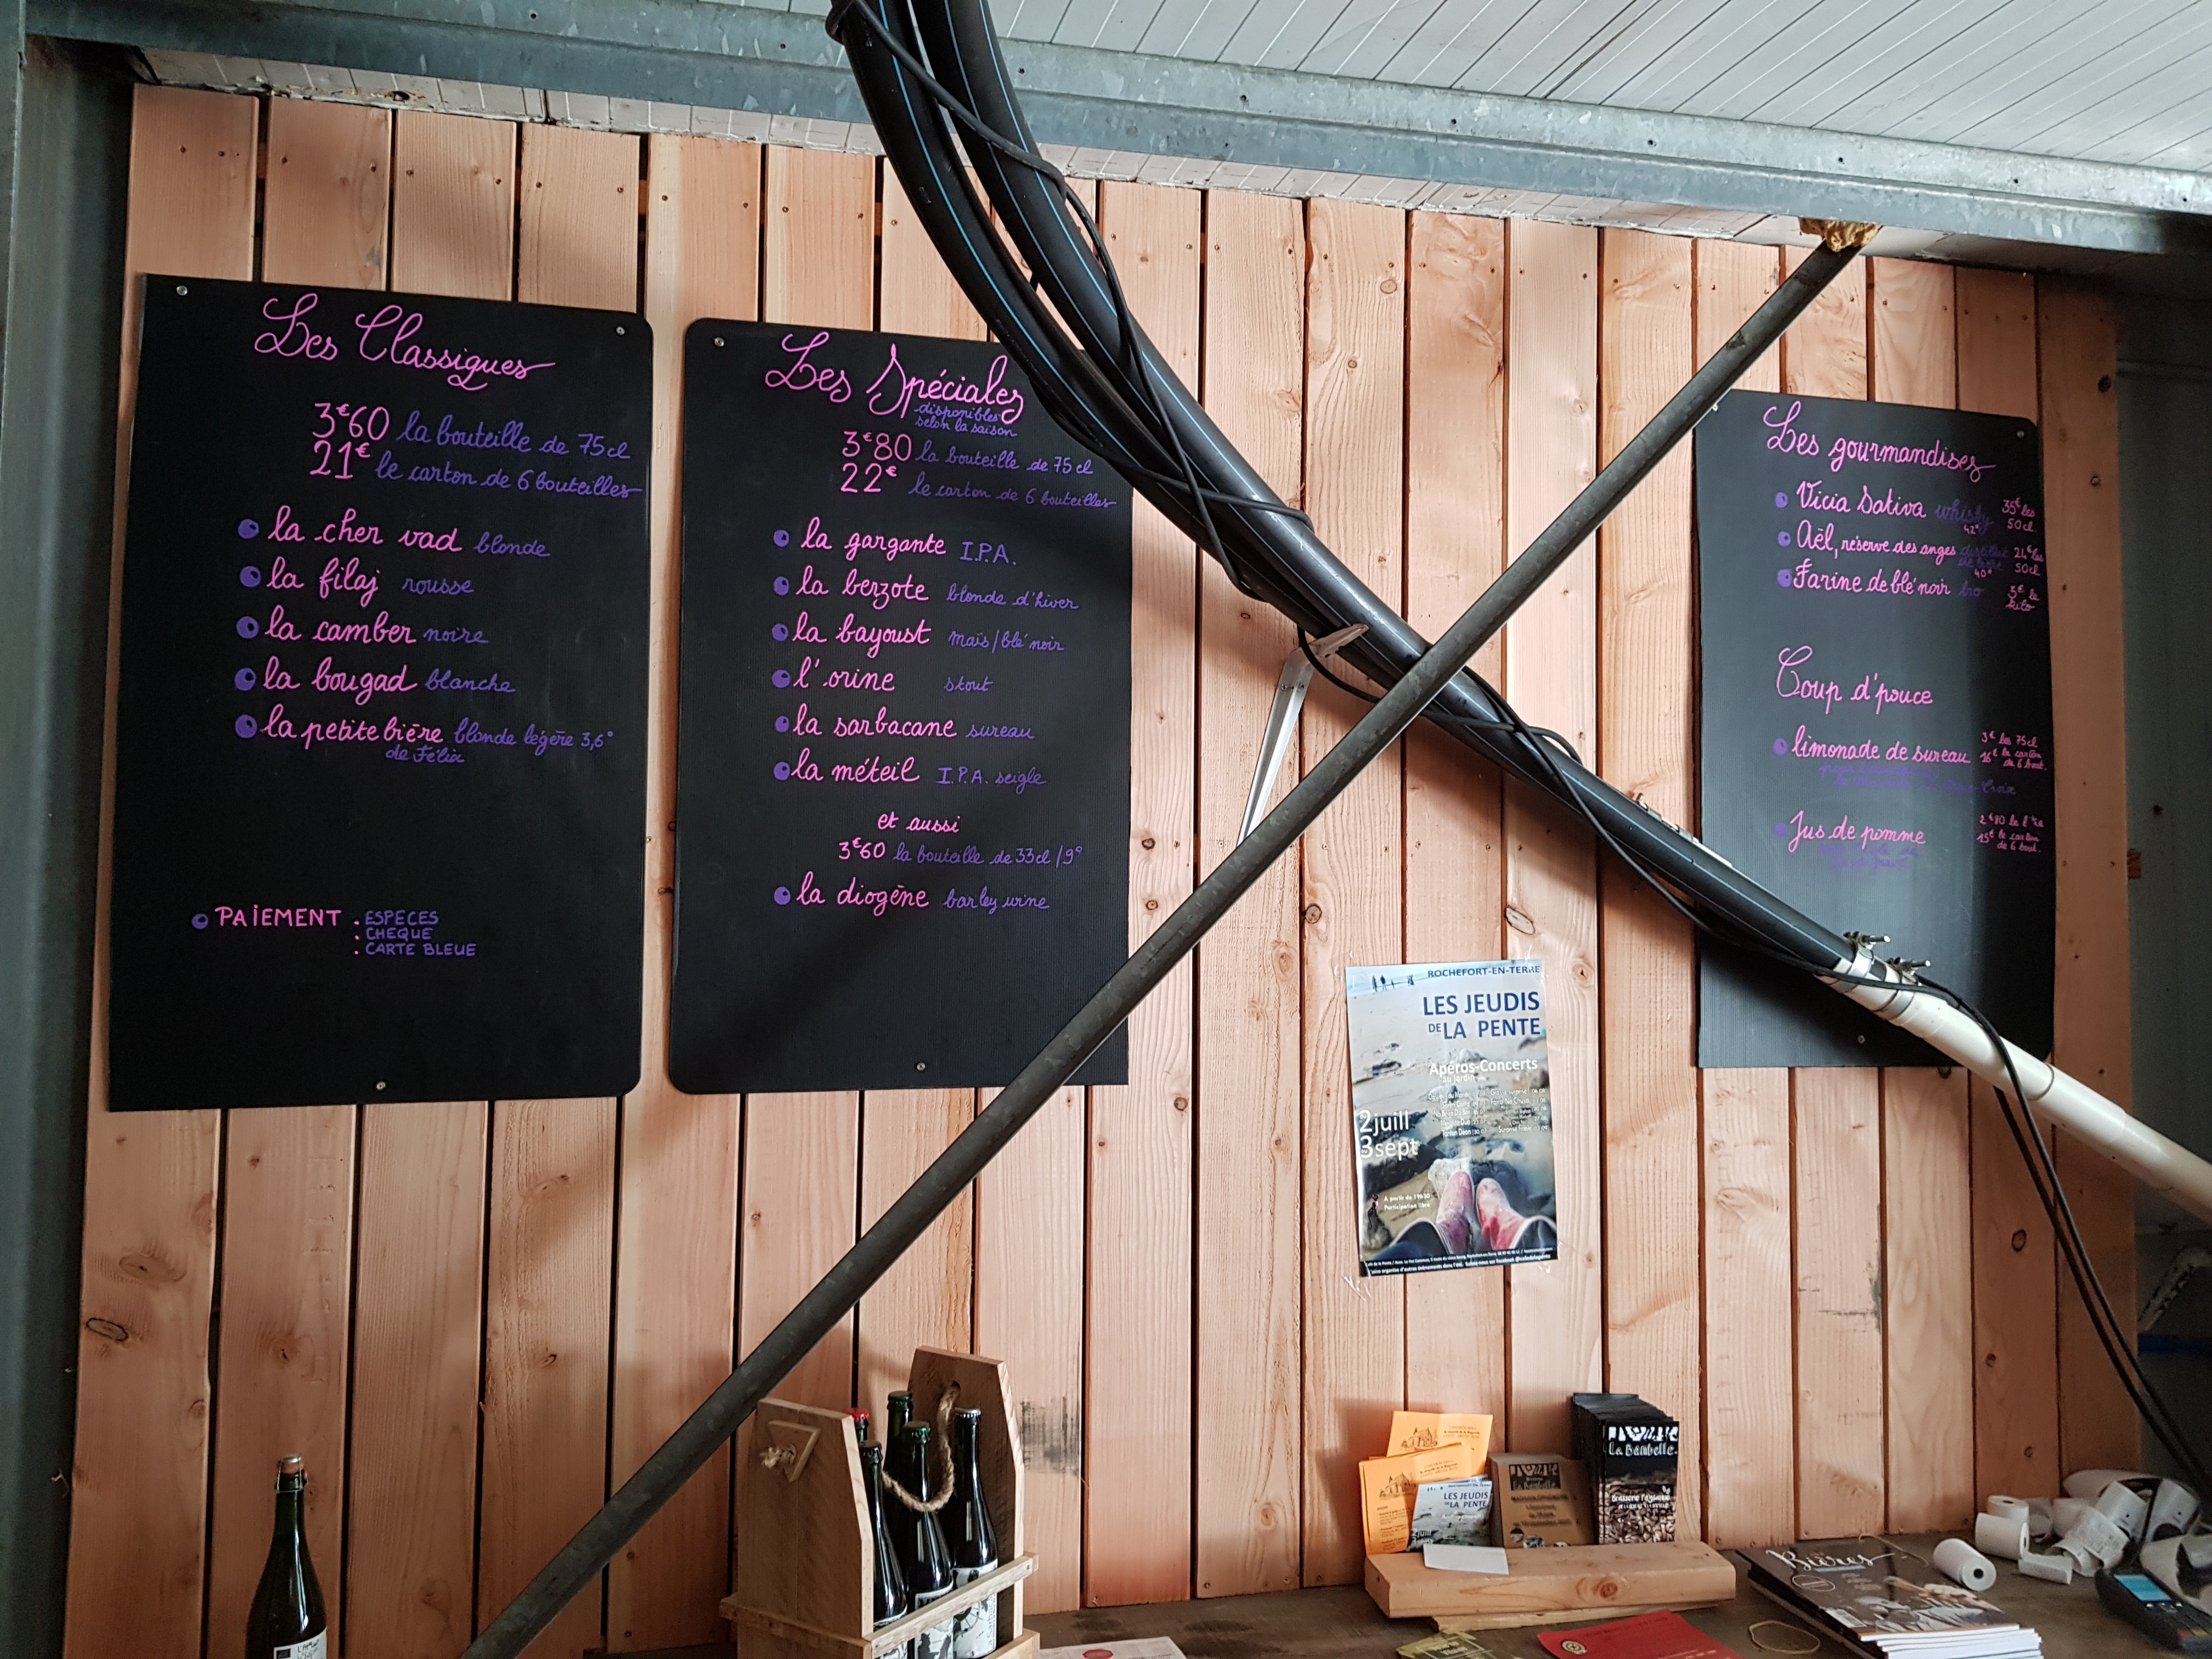 Les Classiques
3€60 la bouteille de 75cl
21€ le carton de 6 bouteilles
la cher vad blonde
la filaj rousse
la camber noire
la bougad blanche
la petite bière blonde légère 3,6°
de Félix
PAIEMENT . ESPECES
. CHEQUE
. CARTE BLEUE
Les Spéciales
disponibles
selon la saison
3€80 la bouteille de 75cl
22€ le carton de 6 bouteilles
la gargante I.P.A.
la berzote blonde d'hiver
la bayoust maïs/blé noir
l'orine stout
la sarbacane sureau
la méteil I.P.A. seigle
et aussi
3€60 la bouteille de 33cl / 9°
la diogène barley wine
Les gourmandises
Vicia Sativa whisky 35€ les
42° 50cl
Aël, réserve des anges 24€ les
40° 50cl
Farine de blé noir 3€ le
kilo
Coup d'pouce
limonade de sureau 3€ les 75cl
16€ le carton
de 6 bout.
Jus de pomme 2€80
15€ le carton
de 6 bout.
ROCHEFORT-EN-TERRE
LES JEUDIS
DE LA PENTE
Apéros-Concerts
au jardin
2juill
3sept
A partir de 19h30
Participation libre
LES JEUDIS
DE LA PENTE
La Bambelle
Bières